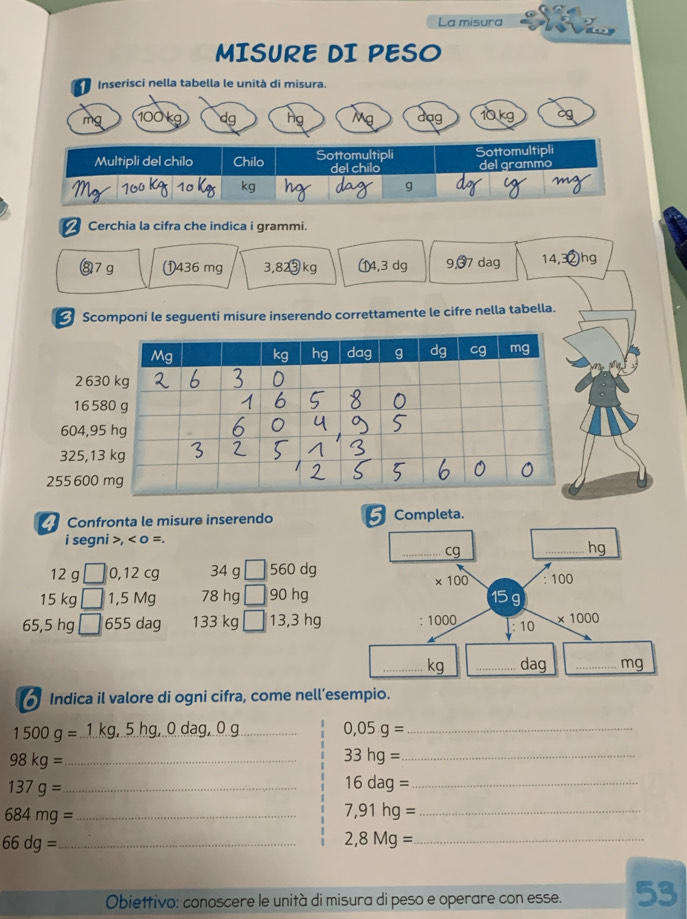 La misura
MISURE DI PESO
1 Inserisci nella tabella le unità di misura.
mg 100 kg dg hg Mg dag 10 kg cg
Multipli del chilo Chilo Sottomultipli del chilo Sottomultipli del grammo
Mg 100 kg 10 kg kg hg dag g dg cg mg
2 Cerchia la cifra che indica i grammi.
8,7 g 1436 mg 3,823 kg 14,3 dg 9,37 dag 14,32 hg
3 Scomponi le seguenti misure inserendo correttamente le cifre nella tabella.
Mg kg hg dag g dg cg mg
2 630 kg 2 6 3 0
16 580 g 1 6 5 8 0
604,95 hg 6 0 4, 9 5
325,13 kg 3 2 5, 1 3
255 600 mg 2 5 5 6 0 0
4 Confronta le misure inserendo
i segni >, < o =.
12 g 0,12 cg 34 g 560 dg
15 kg 1,5 Mg 78 hg 90 hg
65,5 hg 655 dag 133 kg 13,3 hg
5 Completa.
cg hg
× 100 : 100
15 g
: 1000 : 10 × 1000
kg dag mg
6 Indica il valore di ogni cifra, come nell'esempio.
1 500 g = 1 kg, 5 hg, 0 dag, 0 g 0,05 g =
98 kg = 33 hg =
137 g = 16 dag =
684 mg = 7,91 hg =
66 dg = 2,8 Mg =
Obiettivo: conoscere le unità di misura di peso e operare con esse.
53